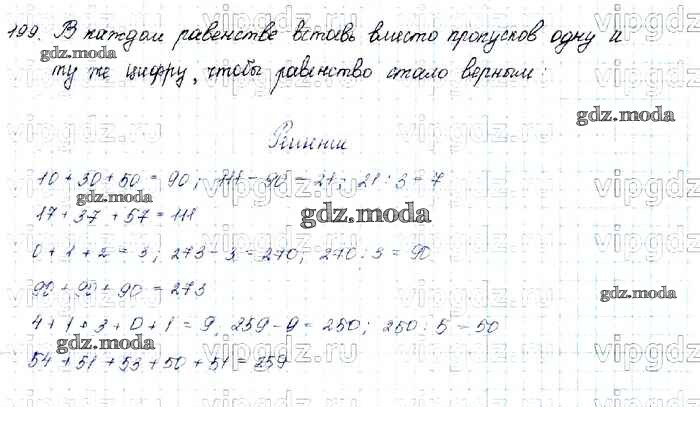 199. В каждом равенстве вставь вместо пропусков одну и
ту же цифру, чтобы равенство стало верным:
Решение
10 + 30 + 50 = 90; 111 - 90 = 21; 21 : 3 = 7
17 + 37 + 57 = 111
0 + 1 + 2 = 3; 273 - 3 = 270; 270 : 3 = 90
90 + 91 + 90 = 273
4 + 1 + 3 + 0 + 1 = 9, 259 - 9 = 250; 250 : 5 = 50
54 + 51 + 53 + 50 + 51 = 259
gdz.moda
gdz.moda
gdz.moda
gdz.moda
gdz.moda
gdz.moda
vipgdz.ru